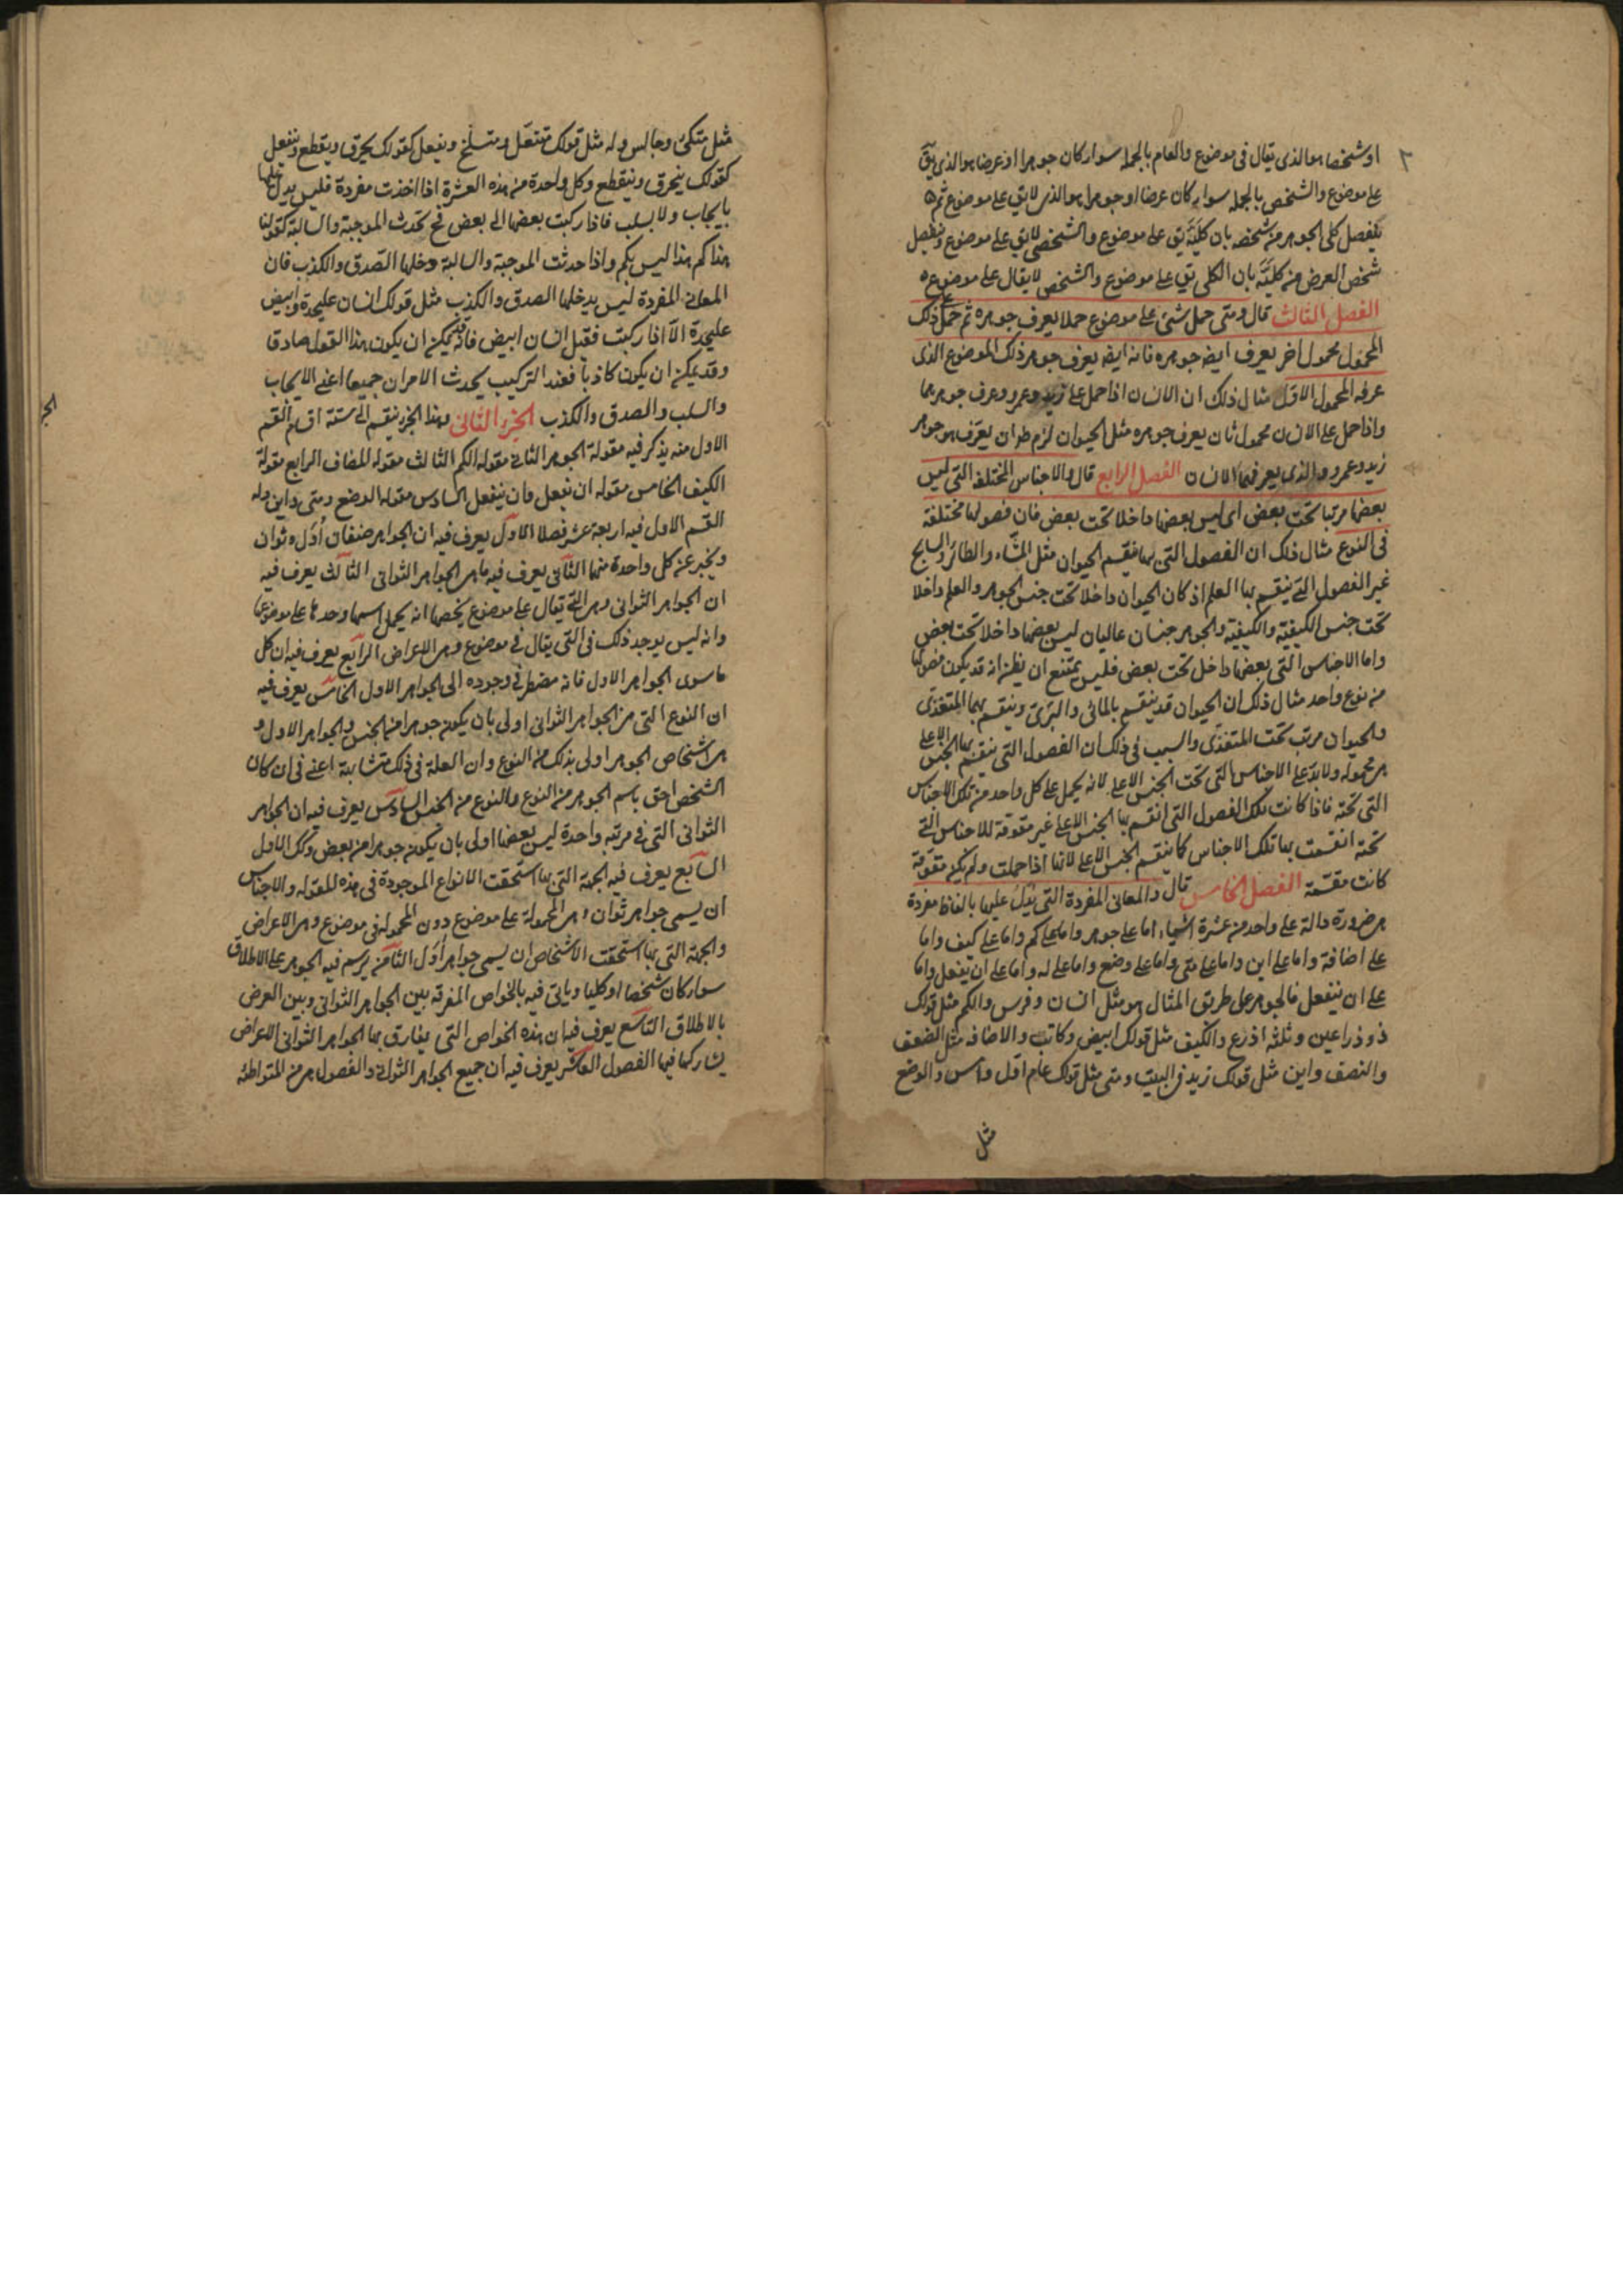 او شخصا هو الذى يقال فى موضوع والعام بالجملة سواء كان جوهرا او عرضا هو الذى يق
على موضوع والشخص بالجملة سواء كان عرضا او جوهرا هو الذى لا يق على موضوع ثم
ينفصل كلى الجوهر من شخصه بان كليّه يق على موضوع والشخص لا يق على موضوع وينفصل
شخص العرض من كليّه بان الكلى يق على موضوع والشخص لا يقال على موضوع
الفصل الثالث قال ومتى حمل شئ على موضوع حملا يعرف جوهره ثم حمل على ذلك
المحمول محمول اخر يعرف ايضا جوهره فانه ايضا يعرف جوهر ذلك الموضوع الذى
عرفه المحمول الاول مثال ذلك ان الانسان اذا حمل على زيد وعمرو عرف جوهرهما
واذا حمل على الانسان محمول ثان يعرف جوهره مثل الحيوان لزم ان يعرف هو جوهر
زيد وعمرو والذى يعرفهما الانسان الفصل الرابع قال والاجناس المختلفة التى ليس
بعضها مرتبا تحت بعض اى ليس بعضها داخلا تحت بعض فان فصولها مختلفة
فى النوع مثال ذلك ان الفصول التى بها ينقسم الحيوان مثل المشّاء والطائر والسابح
غير الفصول التى ينقسم بها العلم اذ كان الحيوان داخلا تحت جنس الجوهر والعلم داخلا
تحت جنس الكيفية والكيفية والجوهر جنسان عاليان ليس بعضها داخلا تحت بعض
واما الاجناس التى بعضها داخل تحت بعض فليس يمتنع ان يظن انه قد يكون فصولها
من نوع واحد مثال ذلك ان الحيوان قد ينقسم بالمائى والبرّى وينقسم بهما المتغذّى
والحيوان مرتب تحت المتغذّى والسبب فى ذلك ان الفصول التى ينقسم بها الجنس الاعلى
هى محمولة ولا بدّ على الاجناس التى تحت الجنس الاعلى لانه يحمل على كل واحد من تلك الاجناس
التى تحته فاذا كانت تلك الفصول التى انقسم بها الجنس الاعلى غير مقومة للاجناس التى
تحته انقسمت بها تلك الاجناس كما ينقسم الجنس الاعلى لانها اذا حملت ولم تكن مقوّمة
كانت مقسّمة الفصل الخامس قال والمعانى المفردة التى يدلّ عليها بالفاظ مفردة
هى ضرورة دالة على واحد من عشرة اشياء اما على جوهر واما على كم واما على كيف واما
على اضافة واما على اين واما على متى واما على وضع واما على له واما على ان يفعل واما
على ان ينفعل فالجوهر على طريق المثال هو مثل انسان وفرس والكم مثل قولك
ذو ذراعين وثلثة اذرع والكيف مثل قولك ابيض وكاتب والاضافة مثل الضعف
والنصف واين مثل قولك زيد فى البيت ومتى مثل قولك عام اول وامس والوضع
مثل
مثل متكئ وجالس وله مثل قولك متنعّل ومتسلّح ويفعل كقولك يحرق ويقطع وينفعل
كقولك ينحرق وينقطع وكل واحدة من هذه العشرة اذا اخذت مفردة فليس يدخلها
بايجاب ولا بسلب فاذا ركبت بعضها الى بعض فح تحدث الموجبة والسالبة كقولنا
هذا كم هذا ليس بكم واذا حدثت الموجبة والسالبة دخلها الصّدق والكذب فان
المعانى المفردة ليس يدخلها الصدق والكذب مثل قولك انسان عليحدة وابيض
عليحدة الّا اذا ركبت فقيل انسان ابيض فانه يمكن ان يكون هذا القول صادقا
وقد يمكن ان يكون كاذبا فعند التركيب يحدث الامران جميعا اعنى الايجاب
والسلب والصدق والكذب الجزء الثانى وهذا الجزء ينقسم الى ستة اقسام القسم
الاول منه يذكر فيه مقولة الجوهر الثانى مقولة الكم الثالث مقولة المضاف الرابع مقولة
الكيف الخامس مقولة ان يفعل وان ينفعل السادس مقولة الوضع ومتى واين وله
القسم الاول فيه اربعة عشر فصلا الاول يعرف فيه ان الجواهر صنفان أول وثوان
ويخبر عن كل واحدة منهما الثانى يعرف فيه ما هى الجواهر الثوانى الثالث يعرف فيه
ان الجواهر الثوانى وهى التى يقال على موضوع يخصها انه يحمل اسمها وحدها على موضوعها
وانه ليس يوجد ذلك فى التى يقال فى موضوع وهى الاعراض الرابع يعرف فيه ان كل
ما سوى الجواهر الاول فانه مضطر فى وجوده الى الجواهر الاول الخامس يعرف فيه
ان النوع التى من الجواهر الثوانى اولى بان يكون جوهرا من الجنس والجواهر الاول و
هى اشخاص الجوهر اولى بذلك من النوع وان العلة فى ذلك متشابهة اعنى فى ان كان
الشخص احق باسم الجوهر من النوع والنوع من الجنس السادس يعرف فيه ان الجواهر
الثوانى التى فى مرتبة واحدة ليس بعضها اولى بان يكون جوهرا من بعض وكك الاول
السابع يعرف فيه الجهة التى بها استحقت الانواع الموجودة فى هذه المقولة والاجناس
ان يسمى جواهر ثوان وهى المحمولة على موضوع دون المحمولة فى موضوع وهى الاعراض
والجهة التى بها استحقت الاشخاص ان يسمى جواهر أول الثامن يرسم فيه الجوهر على الاطلاق
سواء كان شخصا او كليا وياتى فيه بالخواص المفرقة بين الجواهر الثوانى وبين العرض
بالاطلاق التاسع يعرف فيه ان هذه الخواص التى يفارق بها الجواهر الثوانى الاعراض
يشاركها فيها الفصول العاشر يعرف فيه ان جميع الجواهر الثوانى والفصول هى من المتواطئة